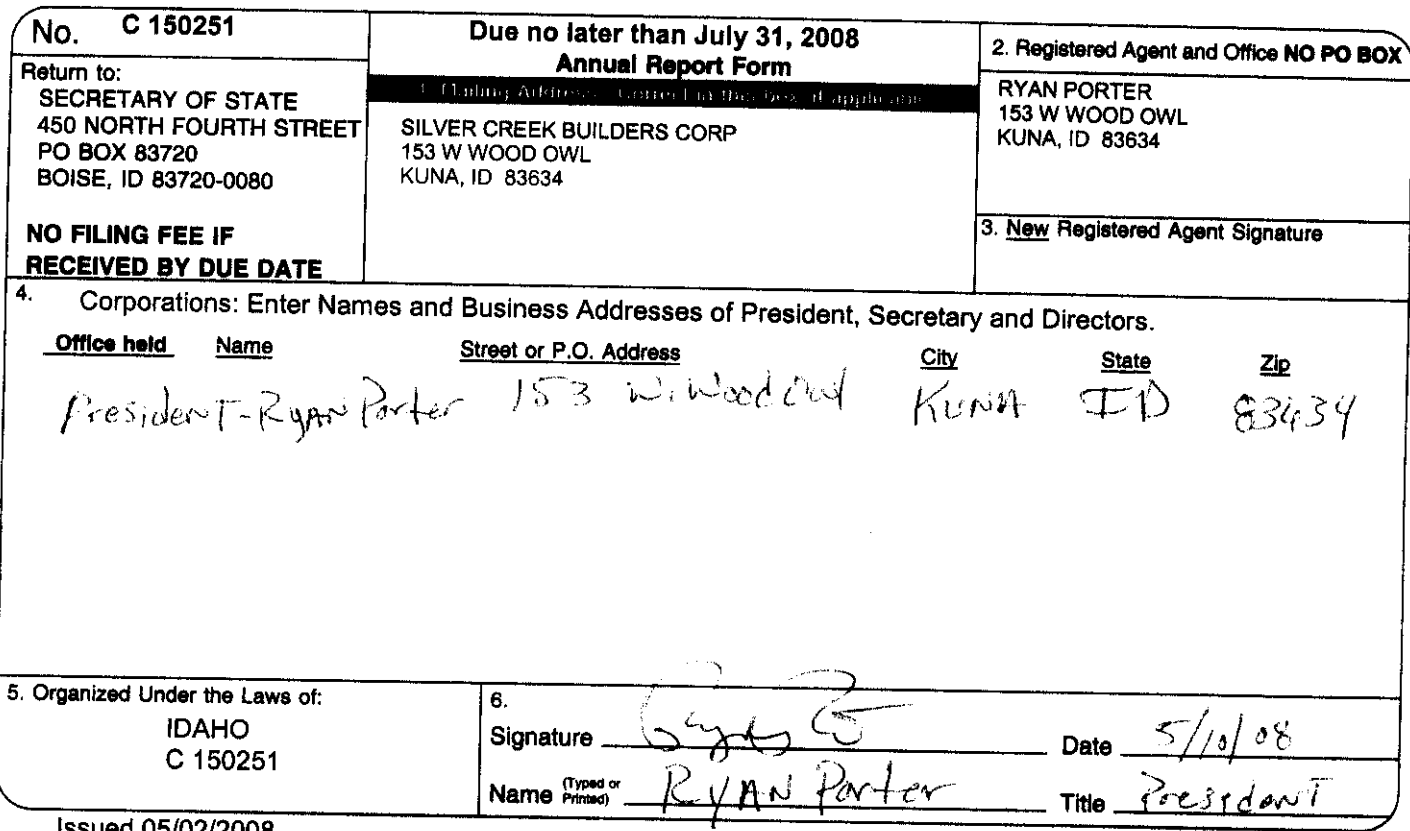 No. C 150251
Return to:
SECRETARY OF STATE
450 NORTH FOURTH STREET
PO BOX 83720
BOISE, ID 83720-0080
NO FILING FEE IF
RECEIVED BY DUE DATE
Due no later than July 31, 2008
Annual Report Form
1. Mailing Address: Correct in this box, if applicable
SILVER CREEK BUILDERS CORP
153 W WOOD OWL
KUNA, ID 83634
2. Registered Agent and Office NO PO BOX
RYAN PORTER
153 W WOOD OWL
KUNA, ID 83634
3. New Registered Agent Signature
4. Corporations: Enter Names and Business Addresses of President, Secretary and Directors.
Office held Name Street or P.O. Address City State Zip
President - Ryan Porter 153 W. Wood Owl KUNA ID 83634
5. Organized Under the Laws of:
IDAHO
C 150251
6.
Signature Date 5/10/08
Name (Typed or Printed) RYAN Porter Title President
Issued 05/02/2008